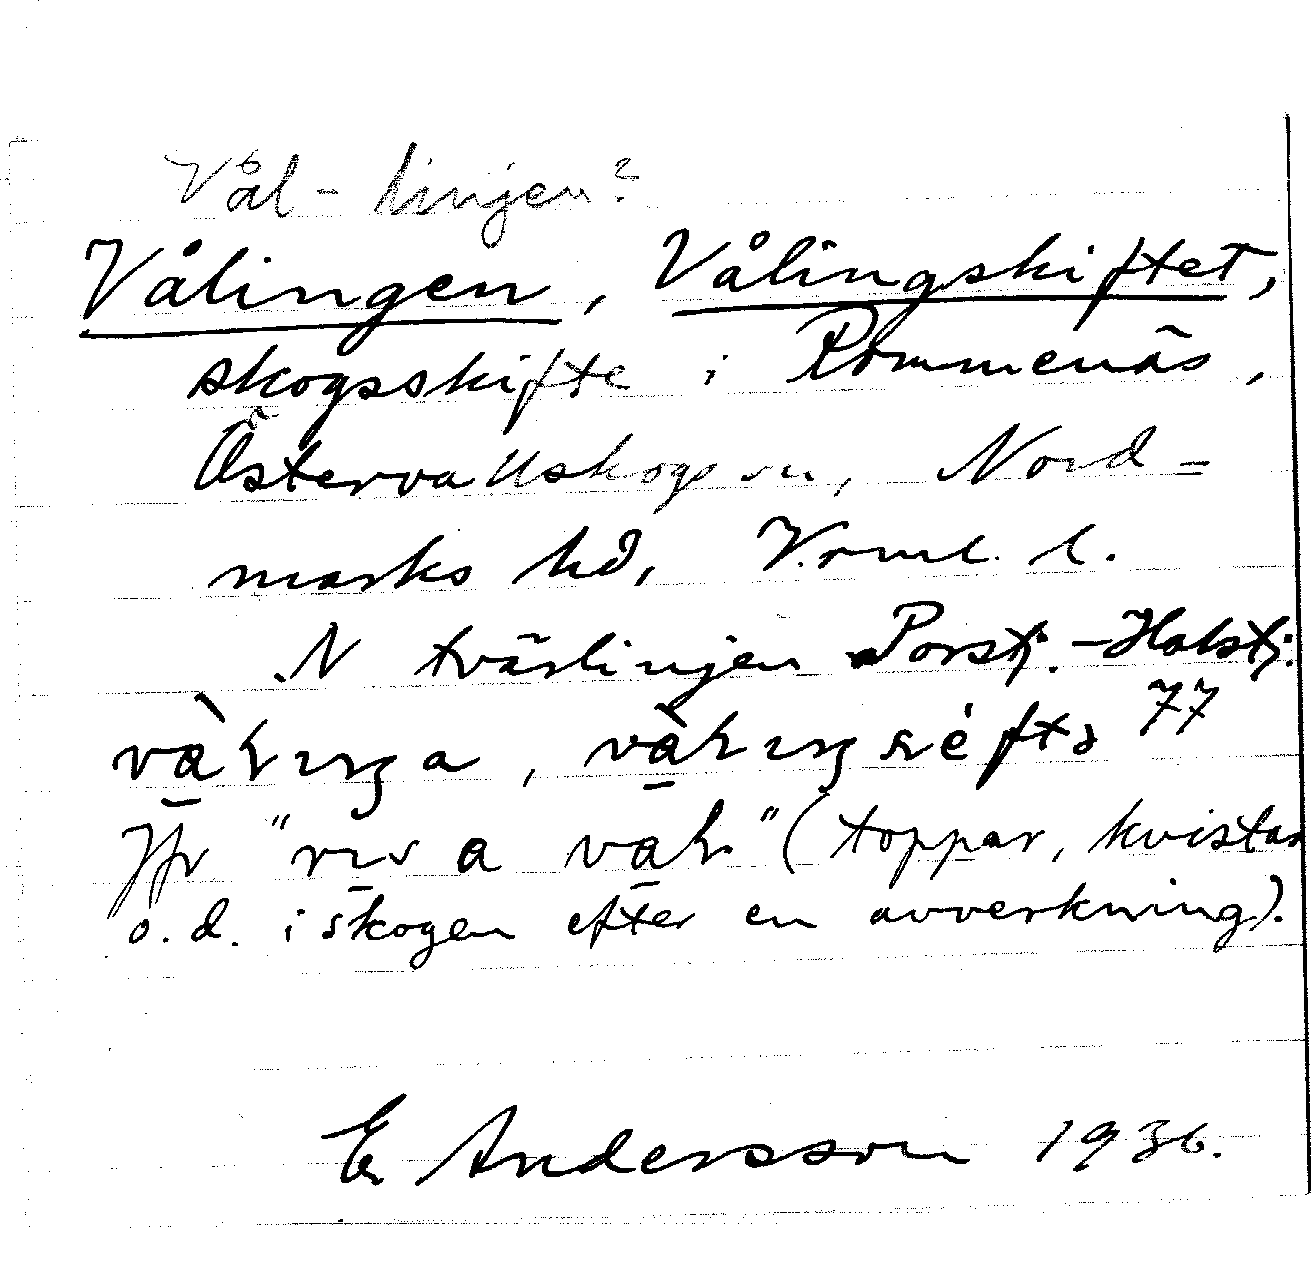 Vål-linjen?
Vålingen, Vålingskiftet,
skogsskifte i Rommenäs,
Östervallskogen, Nord-
marks hd, Vrml. l.
N tvärlinjen Porstj.-Holstj.
77
Jfr " a " (toppar, kvistar
o.d. i skogen efter en avverkning).
E Andersson 1936.